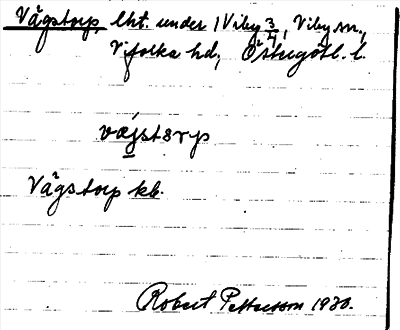 Vägstorp, lht. under 1 Viby 3/4, Viby sn.,
Vifolka hd, Östergötl. l.
väjstorp
Vägstorp kb.
Robert Pettersson 1930.